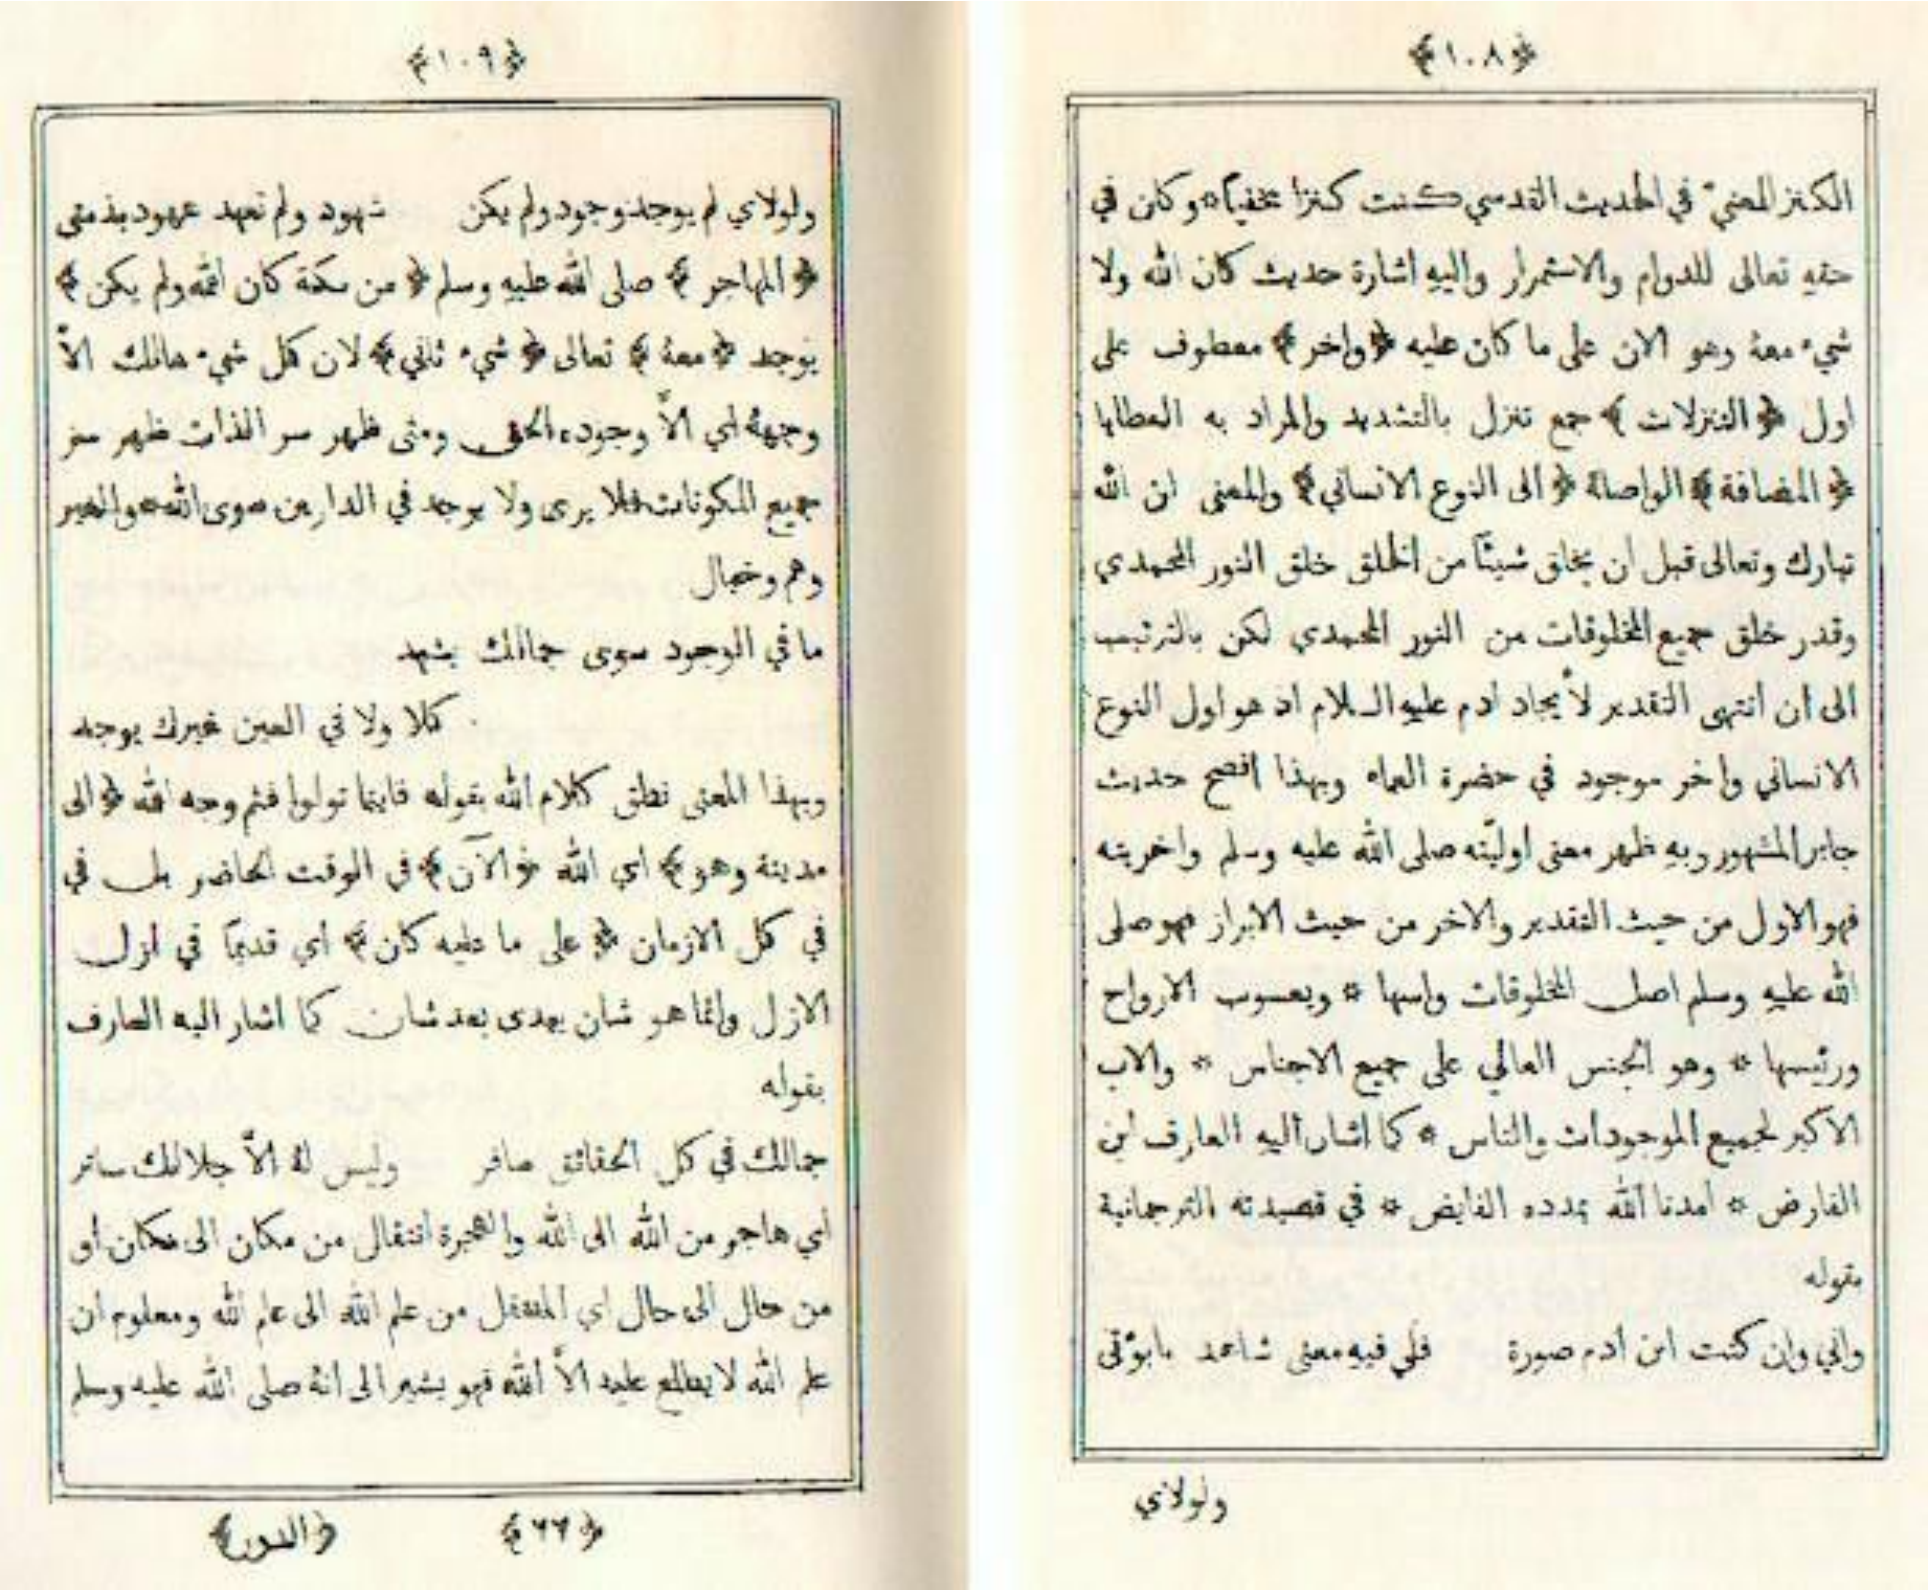 ﴿١٠٨﴾
الكنز المعنيّ في الحديث القدسي كنت كنزا مخفيا * وكان في
حقه تعالى للدوام والاستمرار واليه اشارة حديث كان الله ولا
شيء معه وهو الان على ما كان عليه ﴿واخر﴾ معطوف على
اول ﴿التنزلات﴾ جمع تنزل بالتشديد والمراد به العطايا
﴿المضافة﴾ الواصلة ﴿الى النوع الانساني﴾ والمعنى ان الله
تبارك وتعالى قبل ان يخلق شيئًا من الخلق خلق النور المحمدي
وقدر خلق جميع المخلوقات من النور المحمدي لكن بالترتيب
الى ان انتهى التقدير لأيجاد ادم عليه السلام اذ هو اول النوع
الانساني واخر موجود في حضرة العماء وبهذا افصح حديث
جابر المشهور وبه ظهر معنى اوليّته صلى الله عليه وسلم واخريته
فهو الاول من حيث التقدير والاخر من حيث الابراز فهو صلى
الله عليه وسلم اصل المخلوقات واسها * ويعسوب الارواح
ورئيسها * وهو الجنس العالي على جميع الاجناس * والاب
الاكبر لجميع الموجودات والناس * كما اشار اليه العارف ابن
الفارض * امدنا الله بمدده الفايض * في قصيدته الترجمانية
بقوله
واني وان كنت ابن ادم صورة فلي فيه معنى شاهد بابوّتي
ولولاي
﴿١٠٩﴾
ولولاي لم يوجد وجود ولم يكن شهود ولم تعهد عهود بذمتي
﴿المهاجر﴾ صلى الله عليه وسلم ﴿من مكة كان الله ولم يكن﴾
يوجد ﴿معه﴾ تعالى ﴿شيء ثاني﴾ لان كل شيء هالك الاَّ
وجهه اي الاَّ وجوده الحق ومتى ظهر سر الذات ظهر سر
جميع المكونات فلا يرى ولا يوجد في الدارين سوى الله * والغير
وهم وخيال
ما في الوجود سوى جمالك يشهد
كلا ولا في العين غيرك يوجد
وبهذا المعنى نطق كلام الله بقوله فاينما تولوا فثم وجه الله ﴿الى
مدينة وهو﴾ اي الله ﴿الآن﴾ في الوقت الحاضر بل في
في كل الازمان ﴿على ما عليه كان﴾ اي قديمًا في ازل
الازل وانما هو شان يبدى بعد شان كما اشار اليه العارف
بقوله
جمالك في كل الحقائق سافر وليس له الاَّ جلالك ساتر
اي هاجر من الله الى الله والهجرة انتقال من مكان الى مكان او
من حال الى حال اي المنتقل من علم الله الى علم الله ومعلوم ان
علم الله لا يطلع عليه الاَّ الله فهو يشير الى انه صلى الله عليه وسلم
﴿٢٢﴾ ﴿الدور﴾